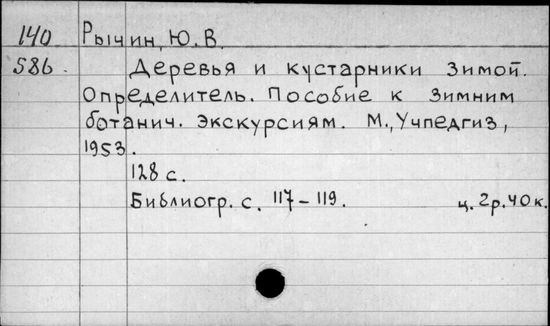 140 Рычин, Ю. В.
586. Деревья и кустарники зимой.
Определитель. Пособие к зимним
ботанич. экскурсиям. М., Учпедгиз,
1953.
128 с.
Библиогр. с. 117-119. ц. 2р. 40к.